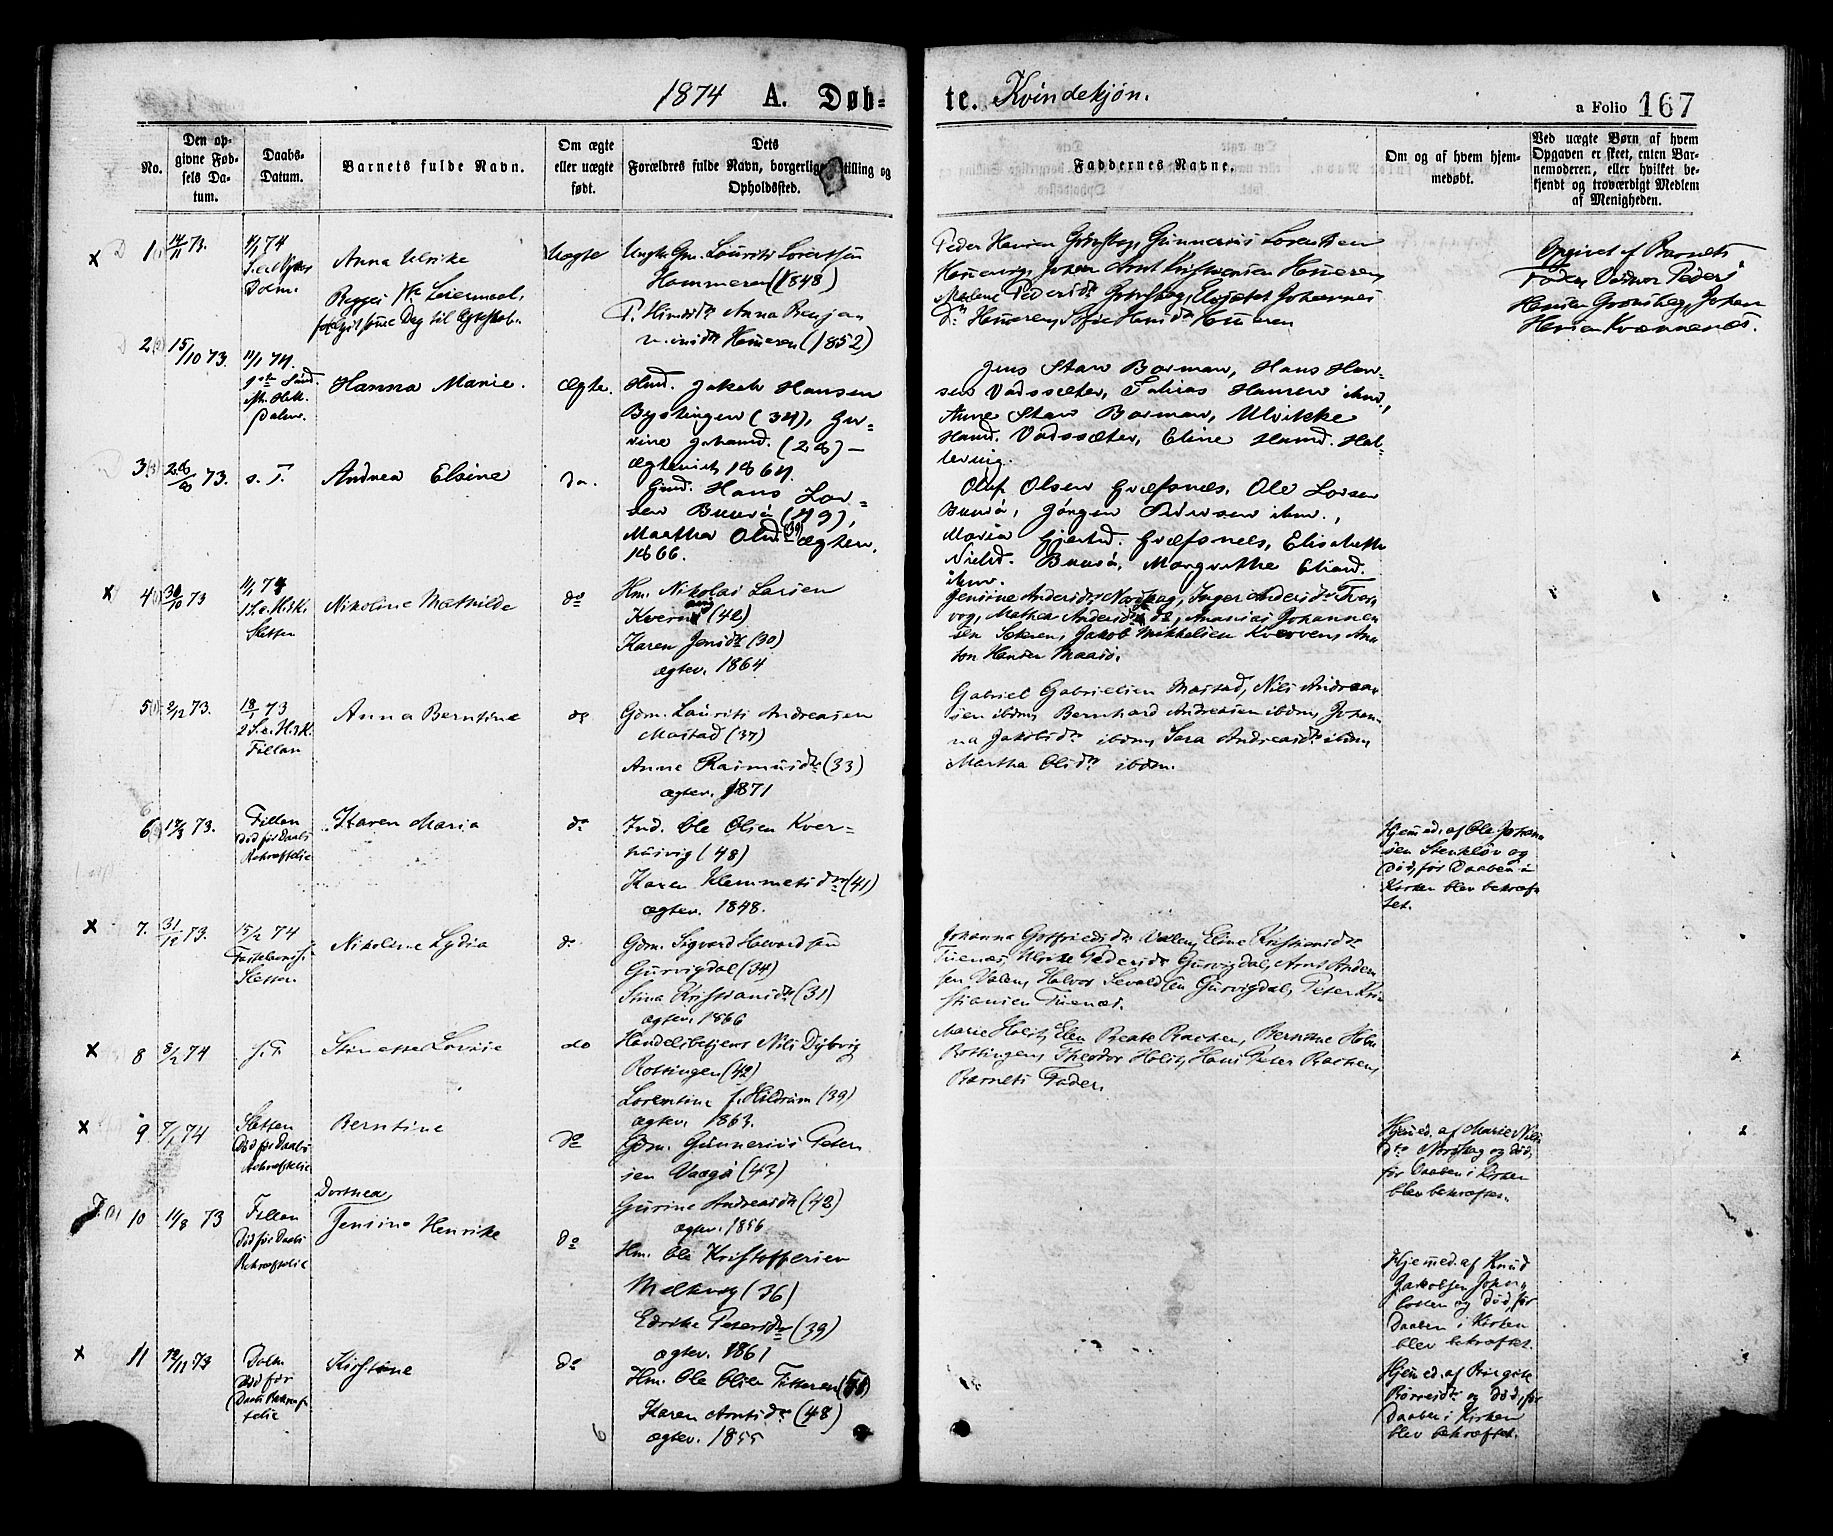 1874 A. Døb-
te. Kvindekjøn.
a Folio 167
No.
Den op-
givne Fød-
sels Da-
tum.
Daabs-
Datum.
Barnets fulde Navn.
Om ægte
eller uægte
født.
Dets
Forældres fulde Navn, borgerlige Stilling og
Opholdssted.
Faddernes Navne.
Om og af hvem hjem-
medøbt.
Ved uægte Børn af hvem
Opgaven er skeet, enten Bar-
nemoderen, eller hvilket be-
kjendt og troværdigt Medlem
af Menigheden.
1 14/11 73.
1/1 74
Dolm.
Anna Ulrike
Begges 1ste Leiermaal,
Uægte
Ungk. Gm. Lourits Lorentsen
Hammeren (1848)
P. Anna Benjam
Hammeren (1852)
Peder Hansen Grönskag, Gunnerius Lorentsen
Hammervig, Johan Arnt Kristiansen Hammeren,
Malene Pedersdtr Grönskag, Elisabet Johannes
dtr Hammeren, Sofie Hansdtr Hammeren
Opgivet af Barnets
Fader Vidner Peder
Hansen Grönskag, Johan
Hansen Kvænnenæs.
2 15/10 73.
11/1 74.
1ste Sönd.
eft. H.3K.
Dolm.
Hanna Marie.
Ægte.
Hmd. Jakob Hansen
Bystingen (34), Gu-
rine Johannd. (28) —
ægteviet 1864.
Jens Stav Borman, Hans Han-
sen Vadssæter, Tobias Hansen ibm.,
Anne Stav Borman, Ulrikke
Hansd. Vadssæter, Eline Hansd. Hal-
tevig.
3 26/10 73.
s. T.
Andrea Elsine
do.
Gmd. Hans Lar-
sen Buusö (49),
Martha Olsd. (39) ægtev.
1866.
Oluf Olsen Græfsnæs, Ole Larsen
Buusö, Jörgen Pedersen ibm.,
Maria Gjertsd. Græfsnæs, Elisabeth
Nielsd. Buusö, Margrethe Eliasd.
ibm.
4 30/10 73
11/1 74
1 S. e. H.3K.
Sletten
Nikoline Mathilde
do
Hm. Nikolai Larsen
Kvernö (42)
Karen Jensdtr (30)
ægtev. 1864
Jensine Andersdtr Nordskag, Inger Andersdtr
Mathea Andersdtr do, Ananias Johannes
sen Sæteren, Jakob Mikkelsen Kverven, An
ton Hansen Maasö.
5 2/12 73.
18/1 73
2 S. e. H.3K.
Fillan
Anna Berntine
do
Gdm. Laurits Andreasen
Mastad (37)
Anne Rasmusdtr (33)
ægtev. 1871
Gabriel Gabrielsen Mastad, Nils Andreas
sen ibdm, Bernhard Andreasen ibdm, Johan-
na Jakobsdtr ibdm, Sara Andreasdtr ibdm,
Martha Olsdtr ibdm.
6 17/3 73.
Fillan
Död för Daabs
Bekræftelse
Karen Maria
do
Ind. Ole Olsen Kver-
husvig (48)
Karen Klemmetsdtr (41)
ægtev. 1848.
Hjemmed. af Ole Johan
sen Stenklöv og
död, för Daaben i
Kirken blev bekræf
tet.
7. 31/12 73.
15/2 74
Fastelavns S.
Sletten
Nikoline Lydia
do
Gdm. Sigvard Halvardsen
Gurvigdal (34)
Stina Kristiansdtr (31)
ægtev. 1866
Johanna Gotfriedsdtr Valen, Eline Kristiansdtr
Tuenæs, Ulrike Pedersdtr Gurvigdal, Arnt Ander
sen Valen, Halvor Sevaldsen Gurvigdal, Peter Kri
stiansen Tuenæs.
8 8/2 74
s. T.
Stinette Lovise
do
Handelsbetjent Nils Dybvig
Rottingen (42)
Lorentine f. Hildrum (39)
ægtev. 1863.
Marie Holst, Elen Beate Backen, Berntine Holm
Rottingen, Theodor Holst, Hans Peter Backen,
Barnets Fader.
9. 7/1 74
Sletten
Död för Daabs
Bekræftelse
Berntine
do
Gdm. Gunnerius Peter
sen Vaagö (43)
Gurine Andreasdtr (42)
ægtev. 1856
Hjemmed. af Marie Nils
dtr Nordskag og död,
för Daaben i Kirken
blev bekræftet.
10 11/8 73
Fillan
Död för Daabs
Bekræftelse
Dorthea
Jensine Henrike
do
Hm. Ole Kristoffersen
Melkvog (36)
Edrike Petersdtr (39)
ægtev. 1861
Hjemmed. af Knud
Jakobsen
og död, för
Daaben i Kirken
blev bekræftet.
11 12/11 73
Dolm
Död för
Daabs Bekræf
telse
Kirstine
do
Hm. Ole Olsen Titteren (51)
Karen Arntsdtr (48)
ægtev. 1855
6
Hjemmed. af Birgitte
Börresdtr og död, för
Daaben i Kirken
blev bekræftet.